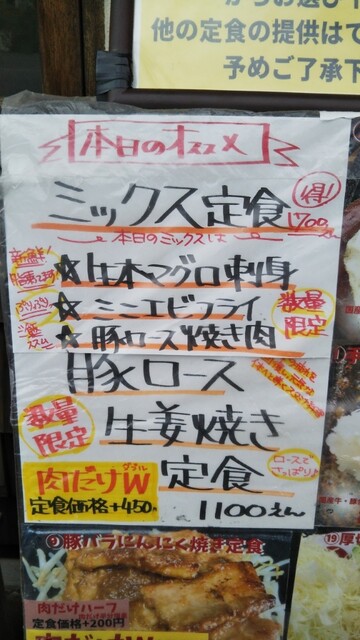 他の定食の提供はで
予めご了承下
本日のオススメ
得!
ミックス定食
1700えん
本日のミックスは
☆生本マグロ刺身
☆ミニエビフライ
☆豚ロース焼き肉
ぷりぷり
ご飯ススム
数量
限定
豚ロース
生姜焼き
定食
1100えん
数量
限定
ロースで
さっぱり♪
肉だけW
ダブル
定食価格+450
豚バラにんにく焼き定食
肉だけハーフ
定食価格+200円
肉だけW
⑲厚切